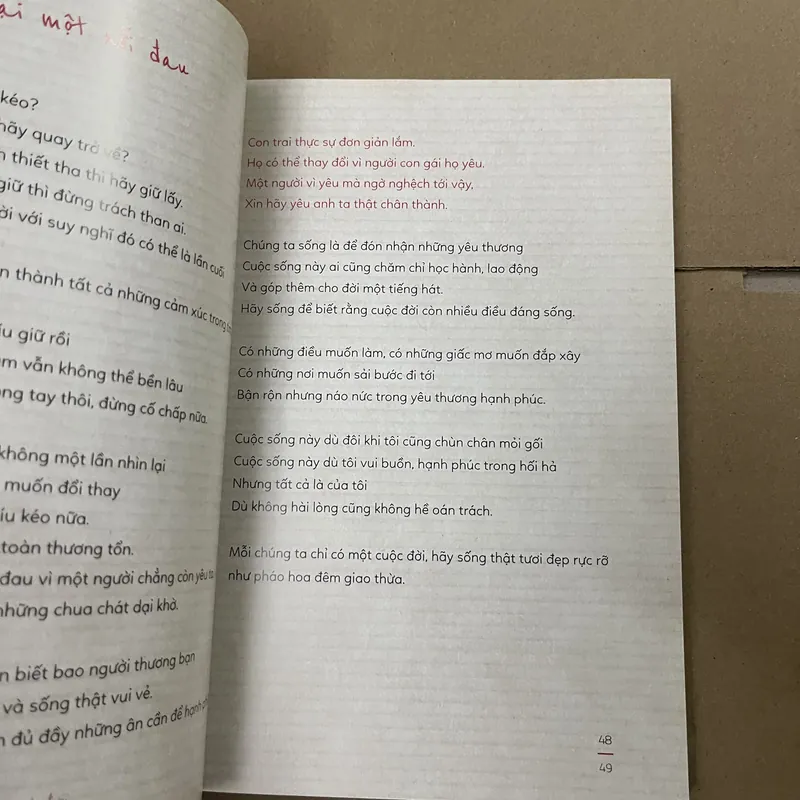 một
đau
kéo?
hãy quay trở về?
thiết tha thì hãy giữ lấy.
giữ thì đừng trách than ai.
với suy nghĩ đó có thể là lần cuối
thành tất cả những cảm xúc trong
giữ rồi
vẫn không thể bền lâu
tay thôi, đừng cố chấp nữa.
không một lần nhìn lại
muốn đổi thay
kéo nữa.
toàn thương tổn.
đau vì một người chẳng còn yêu ta
những chua chát dại khờ.
biết bao người thương bạn
và sống thật vui vẻ.
đủ đầy những ân cần để hạnh
Con trai thực sự đơn giản lắm.
Họ có thể thay đổi vì người con gái họ yêu.
Một người vì yêu mà ngờ nghệch tới vậy,
Xin hãy yêu anh ta thật chân thành.
Chúng ta sống là để đón nhận những yêu thương
Cuộc sống này ai cũng chăm chỉ học hành, lao động
Và góp thêm cho đời một tiếng hát.
Hãy sống để biết rằng cuộc đời còn nhiều điều đáng sống.
Có những điều muốn làm, có những giấc mơ muốn đắp xây
Có những nơi muốn sải bước đi tới
Bận rộn nhưng náo nức trong yêu thương hạnh phúc.
Cuộc sống này dù đôi khi tôi cũng chùn chân mỏi gối
Cuộc sống này dù tôi vui buồn, hạnh phúc trong hối hả
Nhưng tất cả là của tôi
Dù không hài lòng cũng không hề oán trách.
Mỗi chúng ta chỉ có một cuộc đời, hãy sống thật tươi đẹp rực rỡ
như pháo hoa đêm giao thừa.
48
49